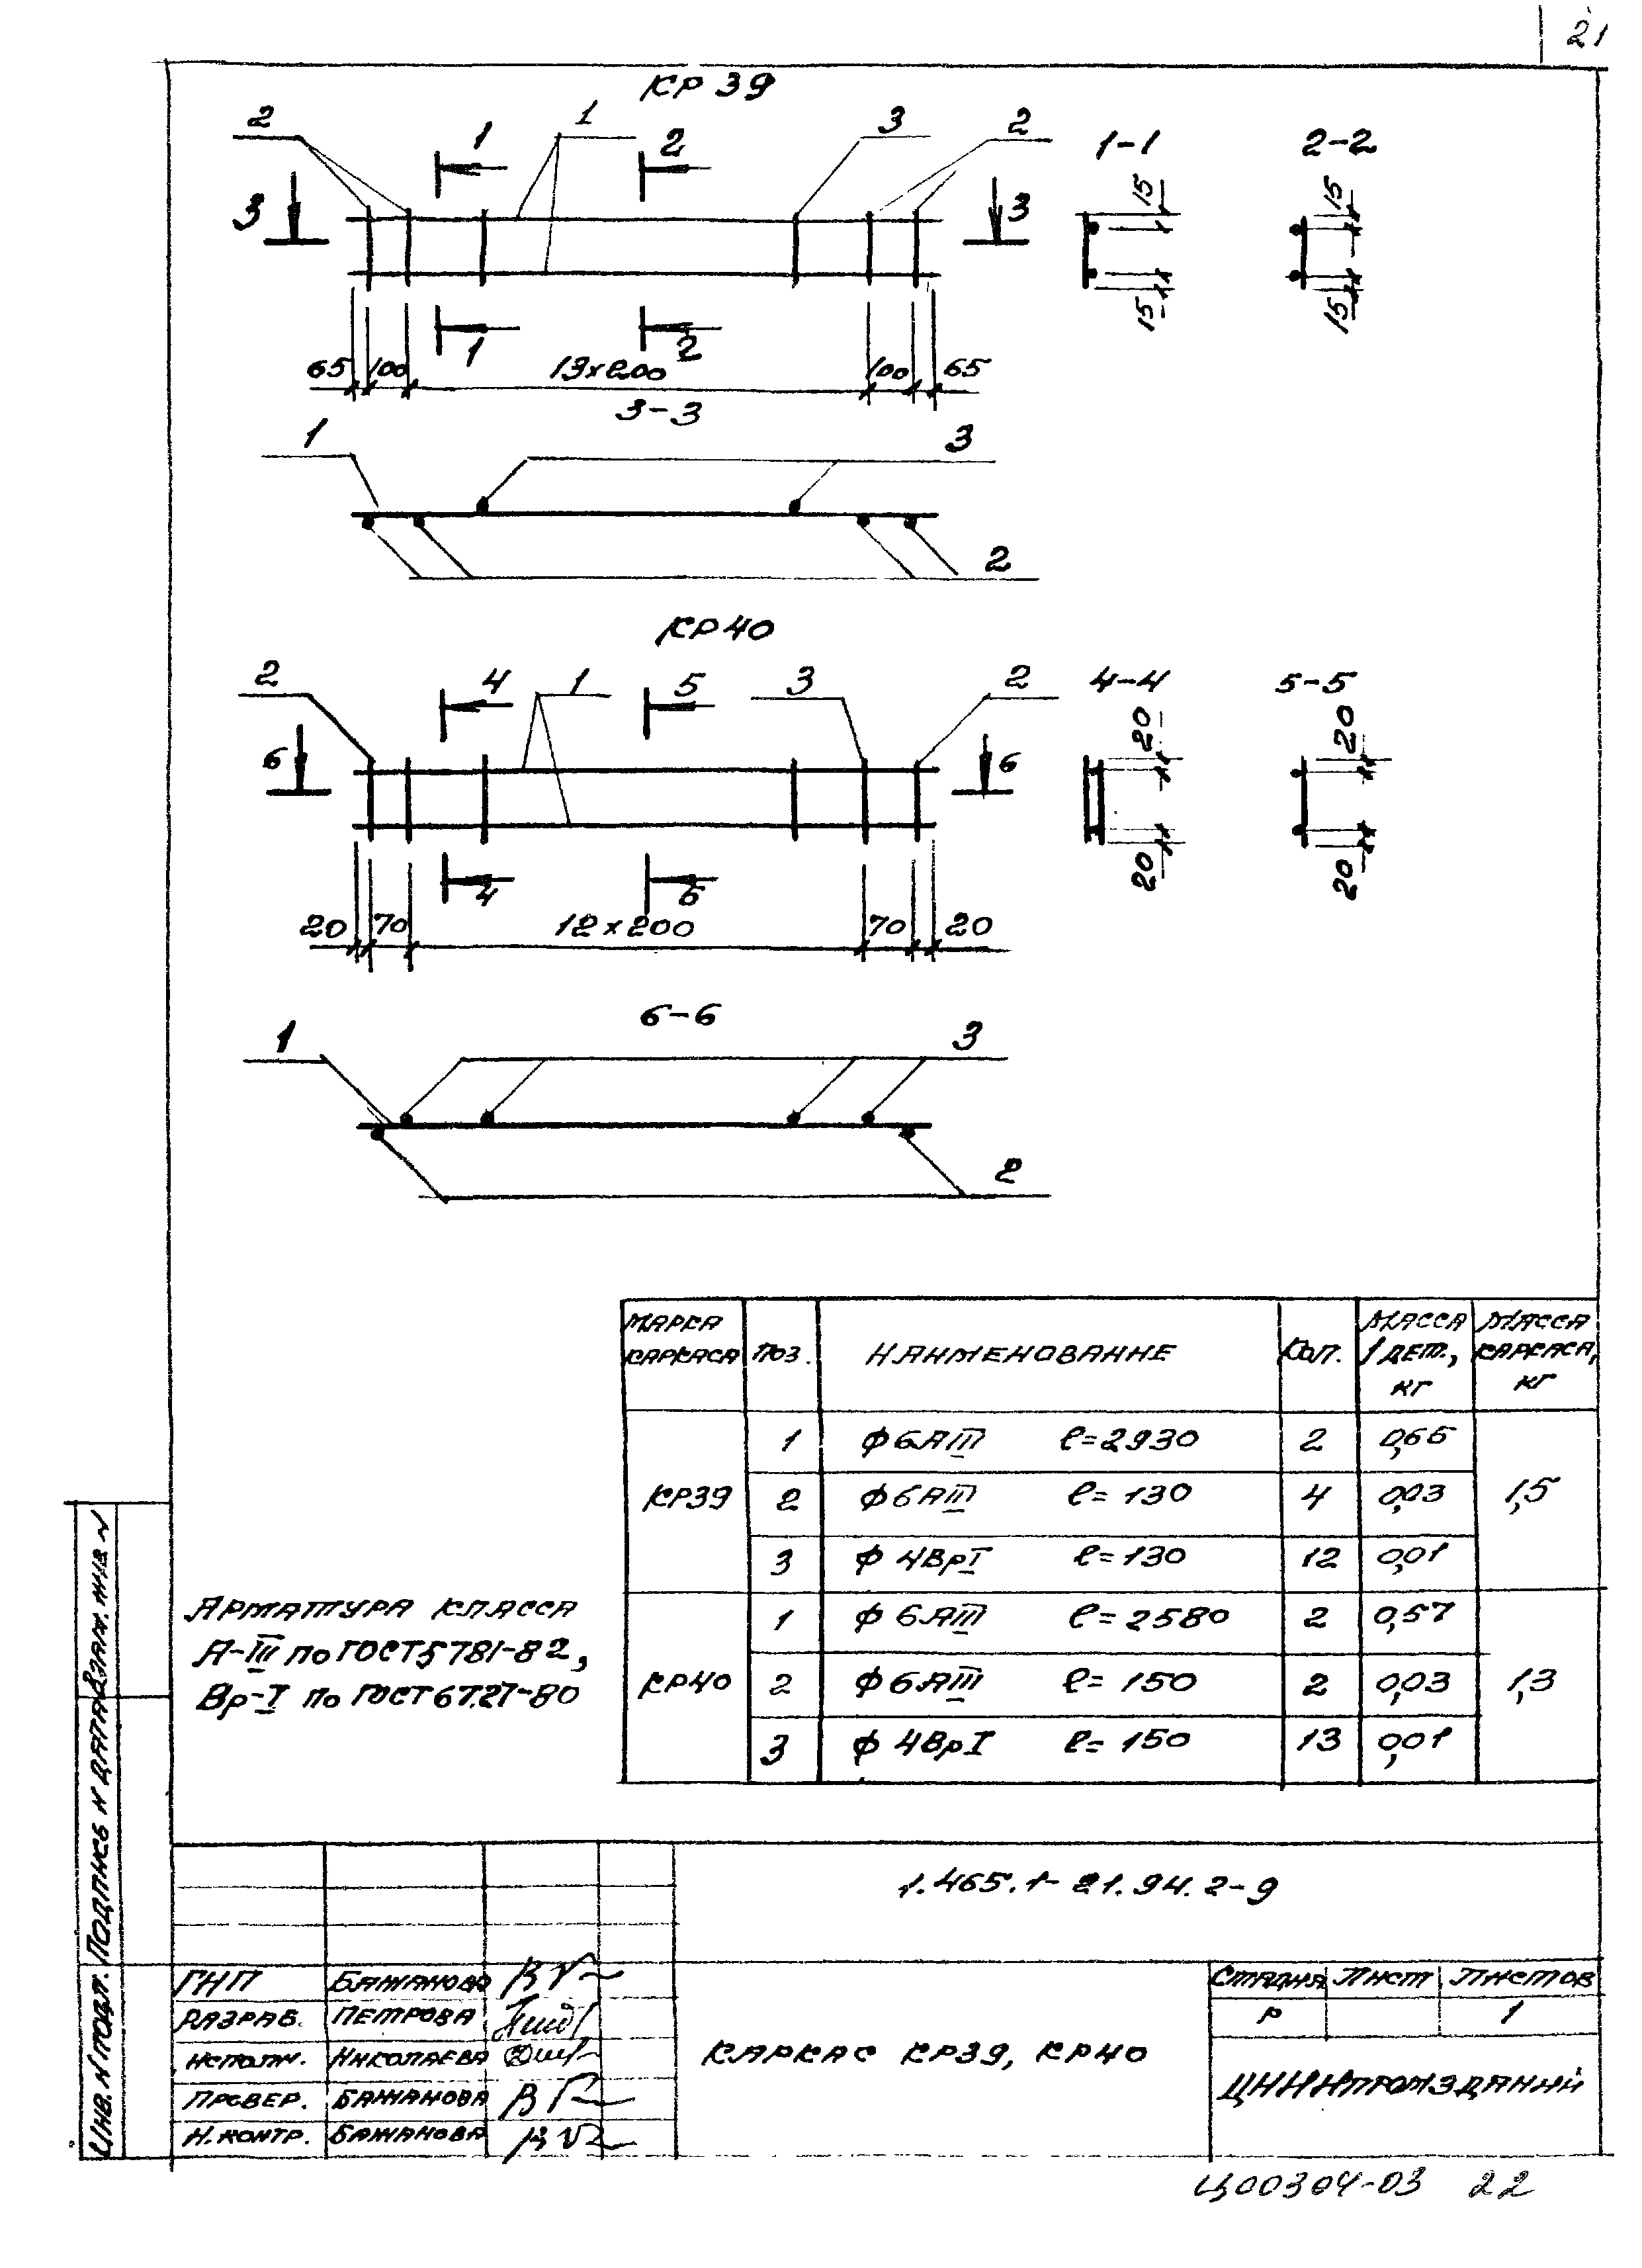 21
КР 39
2 1 1 2 3 2
1-1 2-2
3 3
15 15
15 15
1 2
65 100 13х200 100 65
3-3
1 3
2
КР40
2 4 1 5 3 2
4-4 5-5
6 6
20 20
20 20
4 5
20 70 12х200 70 20
6-6
1 3
2
Марка каркаса Поз. Наименование Кол. Масса 1 дет., кг Масса каркаса, кг
КР39 1 ф6АIII ℓ=2930 2 0,65 1,5
2 ф6АIII ℓ=130 4 0,03
3 ф4ВрI ℓ=130 12 0,01
КР40 1 ф6АIII ℓ=2580 2 0,57 1,3
2 ф6АIII ℓ=150 2 0,03
3 ф4ВрI ℓ=150 13 0,01
Арматура класса
А-III по ГОСТ 5781-82,
Вр-I по ГОСТ 6727-80
Инв. N подл. Подпись и дата Взам. инв N
1.465.1-21.94.2-9
ГИП Бажанова
Разраб. Петрова
Исполн. Николаева
Провер. Бажанова
Н.контр. Бажанова
Каркас КР39, КР40
Стадия Лист Листов
Р 1
ЦНИИпромзданий
Ц00304-03 22